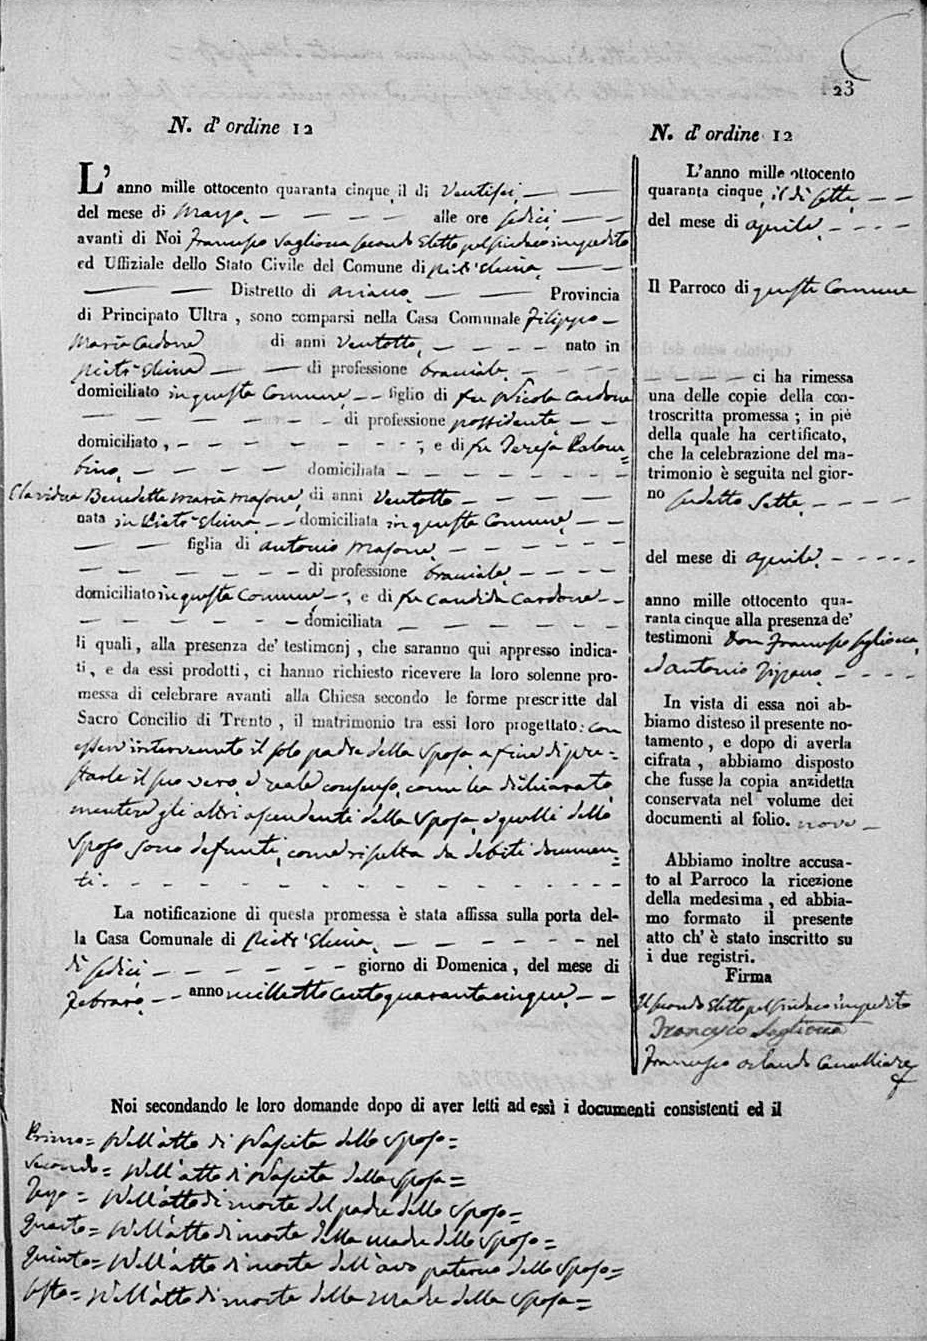 23
N. d' ordine 12
L' anno mille ottocento quaranta cinque il dì Ventisei
del mese di Marzo alle ore sedici
avanti di Noi Francesco Saglioccia secondo Eletto pel Sindaco impedito
ed Uffiziale dello Stato Civile del Comune di Pietr'Elcina
Distretto di Ariano Provincia
di Principato Ultra, sono comparsi nella Casa Comunale Filippo
Maria Cardone di anni Ventotto nato in
Pietr'Elcina di professione bracciale
domiciliato in questo Comune figlio di fu Nicola Cardone
di professione possidente
domiciliato, ; e di fu Teresa Palom=
bino domiciliata
e la vidua Benedetta Maria Masone, di anni Ventotto
nata in Pietr'Elcina domiciliata in questo Comune
figlia di Antonio Masone
di professione bracciale
domiciliato in questo Comune, e di fu Candida Cardone
domiciliata
li quali, alla presenza de' testimonj, che saranno qui appresso indica-
ti, e da essi prodotti, ci hanno richiesto ricevere la loro solenne pro-
messa di celebrare avanti alla Chiesa secondo le forme prescritte dal
Sacro Concilio di Trento, il matrimonio tra essi loro progettato: con
esservi intervenuto il solo padre della Sposa a fine di pre=
starle il suo vero, e reale consenso, come ha dichiarato,
mentre gli altri ascendenti della Sposa, e quelli dello
Sposo sono defunti, come rispetta da debiti documen=
ti.
La notificazione di questa promessa è stata affissa sulla porta del-
la Casa Comunale di Pietr'Elcina nel
dì sedici giorno di Domenica, del mese di
Febraro anno milleottocentoquarantacinque
N. d' ordine 12
L'anno mille ottocento
quaranta cinque il dì sette
del mese di aprile
Il Parroco di questo Comune
ci ha rimessa
una delle copie della con-
troscritta promessa; in piè
della quale ha certificato,
che la celebrazione del ma-
trimonio è seguita nel gior-
no sudetto Sette
del mese di aprile
anno mille ottocento qua-
ranta cinque alla presenza de'
testimoni Don Francesco Saglioccia,
ed Antonio
In vista di essa noi ab-
biamo disteso il presente no-
tamento, e dopo di averla
cifrata, abbiamo disposto
che fusse la copia anzidetta
conservata nel volume dei
documenti al folio. nove
Abbiamo inoltre accusa-
to al Parroco la ricezione
della medesima, ed abbia-
mo formato il presente
atto ch' è stato inscritto su
i due registri.
Firma
Il secondo Eletto pel Sindaco impedito
Francesco Saglioccia
Francesco Orlando Cancelliere
Noi secondando le loro domande dopo di aver letti ad essi i documenti consistenti ed il
Primo= Nell'atto di Nascita dello Sposo=
Secondo= Nell'atto di Nascita della Sposa=
Terzo= Nell'atto di morte del padre dello Sposo=
Quarto= Nell'atto di morte della madre dello Sposo=
Quinto= Nell'atto di morte dell'avo paterno dello Sposo=
Sesto= Nell'atto di morte della Madre della Sposa=